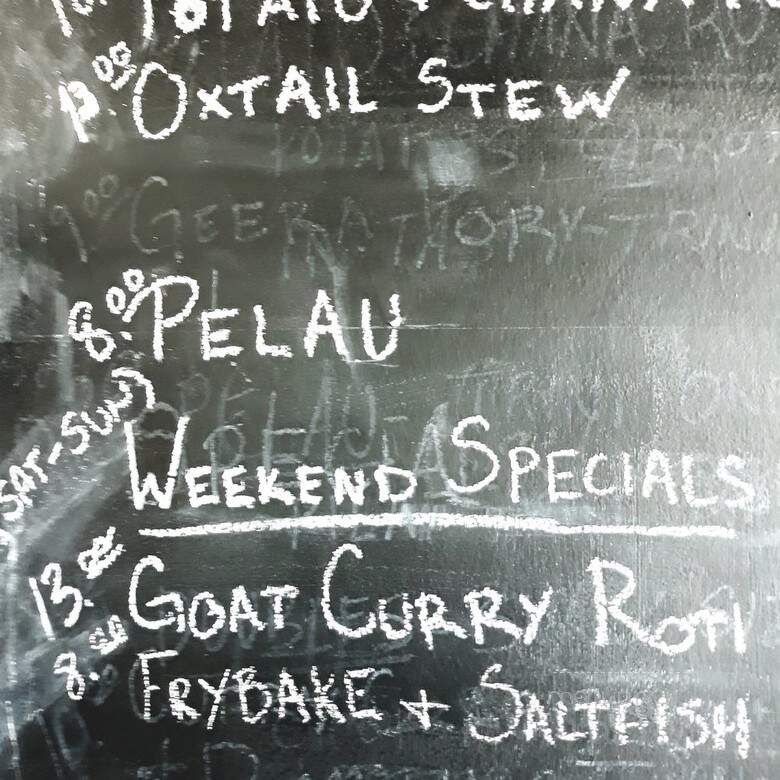 POTATO + CHANA
13.00 OXTAIL STEW
9.00 GEERA PORK-TRINI
8.00 PELAU
(SAT-SUN)
WEEKEND SPECIALS
13.00 GOAT CURRY ROTI
8.00 FRYBAKE + SALTFISH